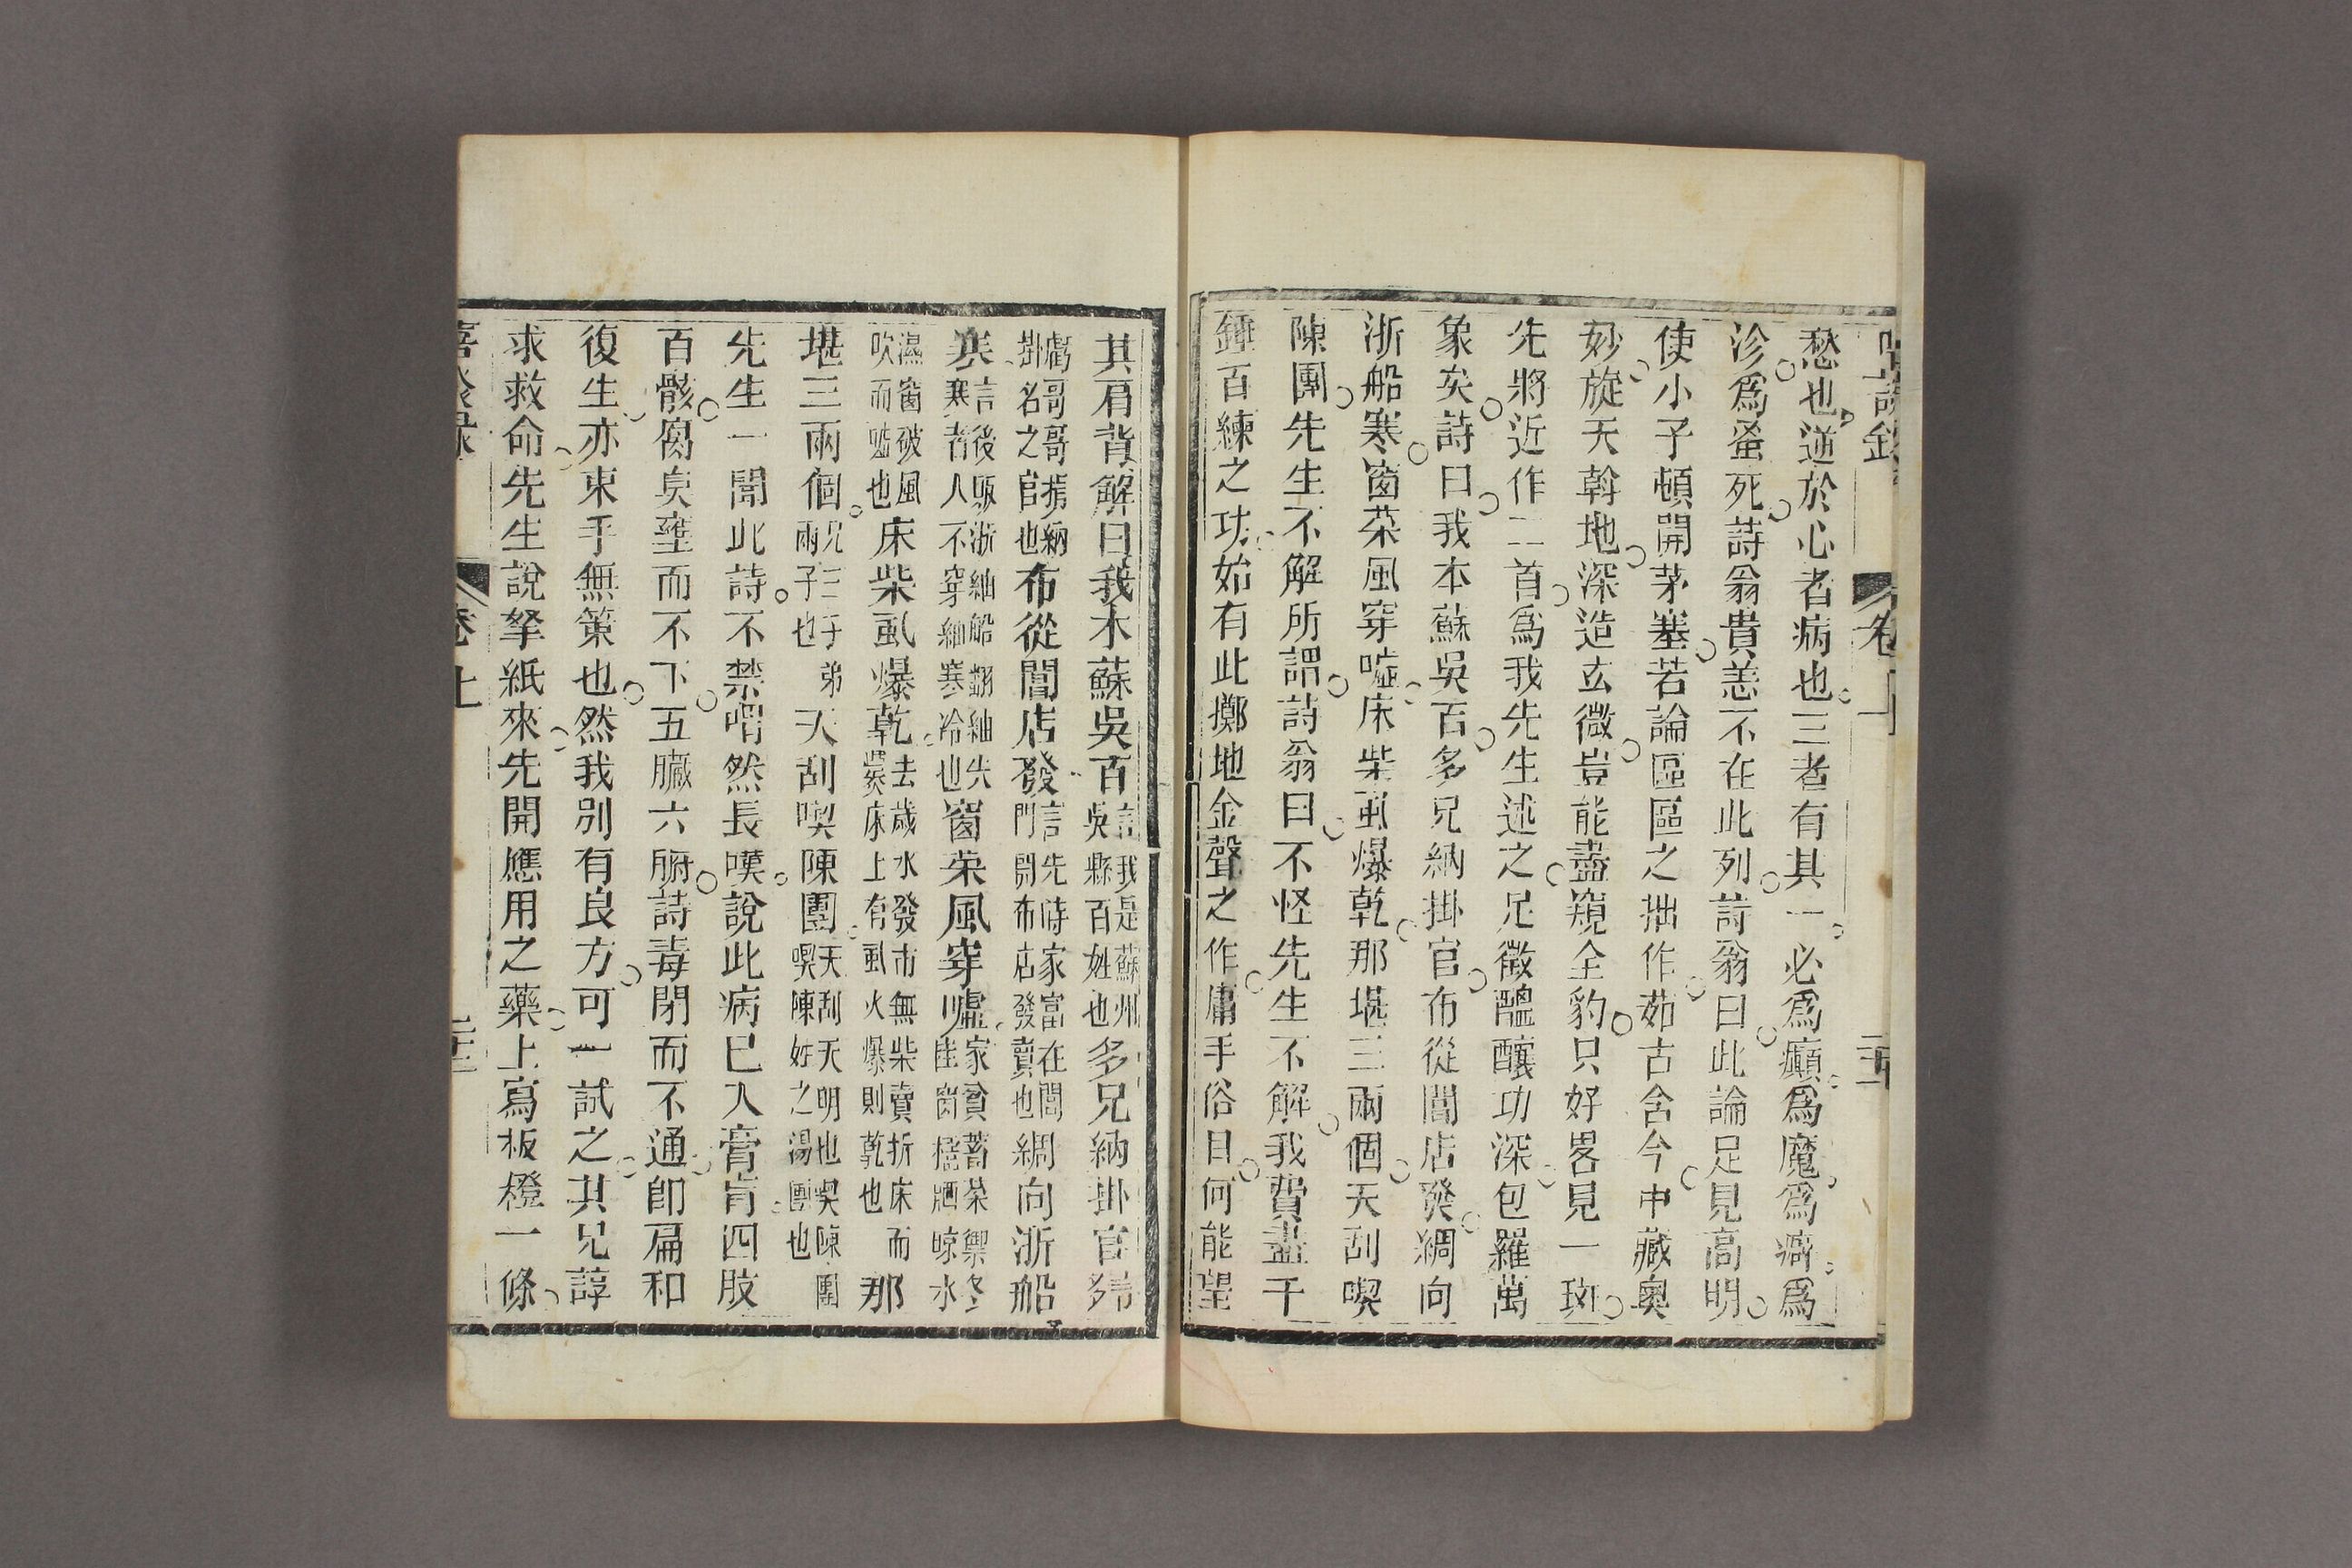 愁也逆於心者病也三者有其一必爲癲爲魔爲癖爲
沴爲蚤死詩翁貴恙不在此列詩翁曰此論足見高明
使小子頓開茅塞若論區區之拙作茹古含今中藏奧
妙旋天斡地深造玄微豈能盡窺全豹只好畧見一斑
先將近作二首爲我先生述之足徵醞釀功深包羅萬
象矣詩曰我本蘇吳百多兄納掛官布從閶店發綢向
浙船寒窗菜風穿噓床柴虱爆乾那堪三兩個天刮喫
陳團先生不解所謂詩翁曰不怪先生不解我費盡千
錘百練之功始有此擲地金聲之作庸手俗目何能望
其肩背解曰我本蘇吳百言我是蘇州吳縣百姓也多兄納掛官言多
虧哥哥捐納掛名之官也布從閶店發言先時家富在閶門開布店發賣也綢向浙船
寒言後販浙紬船翻紬失寒者人不穿紬寒冷也窗菜風穿噓家貧蓄菜禦冬挂窗檣晒晾水
濕窗破風吹而噓也床柴虱爆乾去歲水發市無柴賣折床而爨床上有虱火爆則乾也那
堪三兩個兄三子弟兩子也天刮喫陳團天刮天明也喫陳團喫陳姓之湯團也
先生一聞此詩不禁喟然長嘆說此病已入膏肓四肢
百骸腐臭壅而不下五臟六腑詩毒閉而不通卽扁和
復生亦束手無策也然我別有良方可一試之其兄諄
求救命先生說拏紙來先開應用之藥上寫板櫈一條
卷上